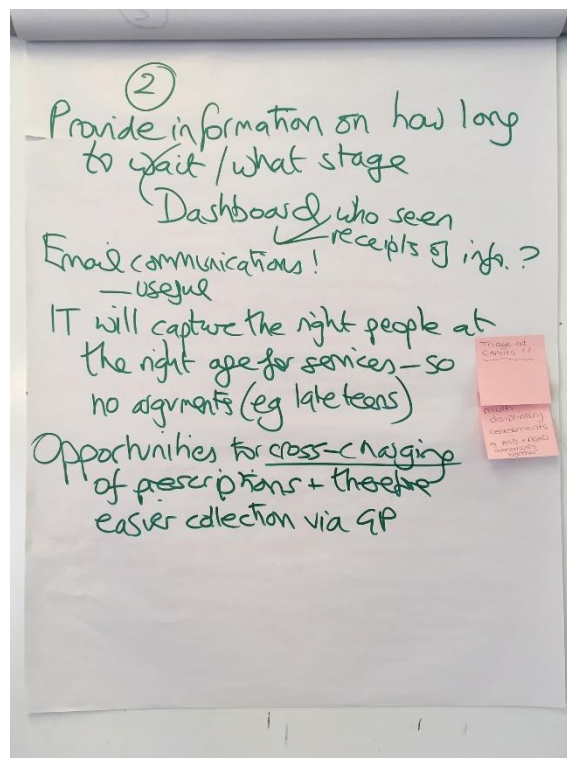 2
Provide information on how long
to wait / what stage
Dashboard, who seen
receipts of info. ?
Email communications!
— useful
IT will capture the right people at
the right age for services – so
no arguments (eg late teens)
Opportunities for cross-charging
of prescriptions + therefore
easier collection via GP
Triage at
CAMHS !!
multi
disciplinary
assessments
eg ASD + ADHD
together